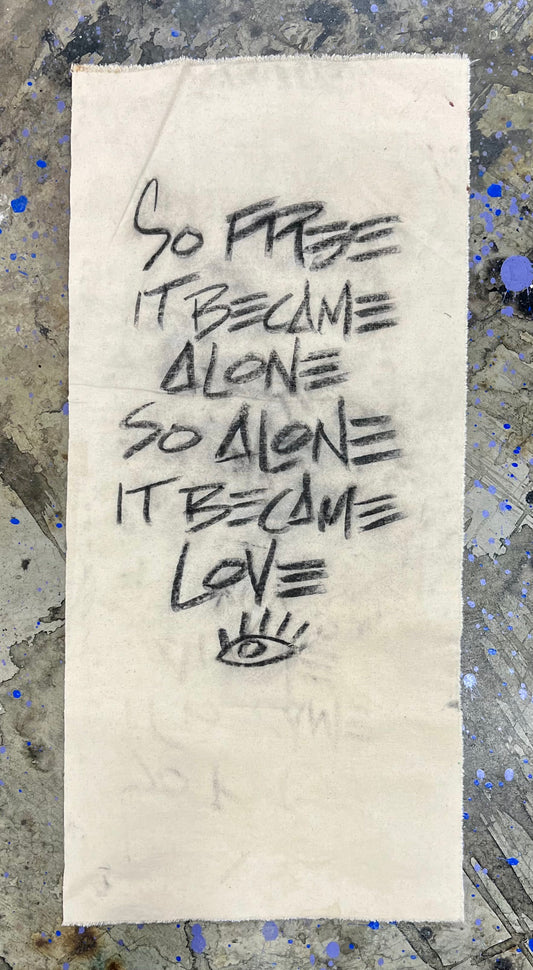 So FREE
IT BECAME
ALONE
So ALONE
IT BECAME
LOVE